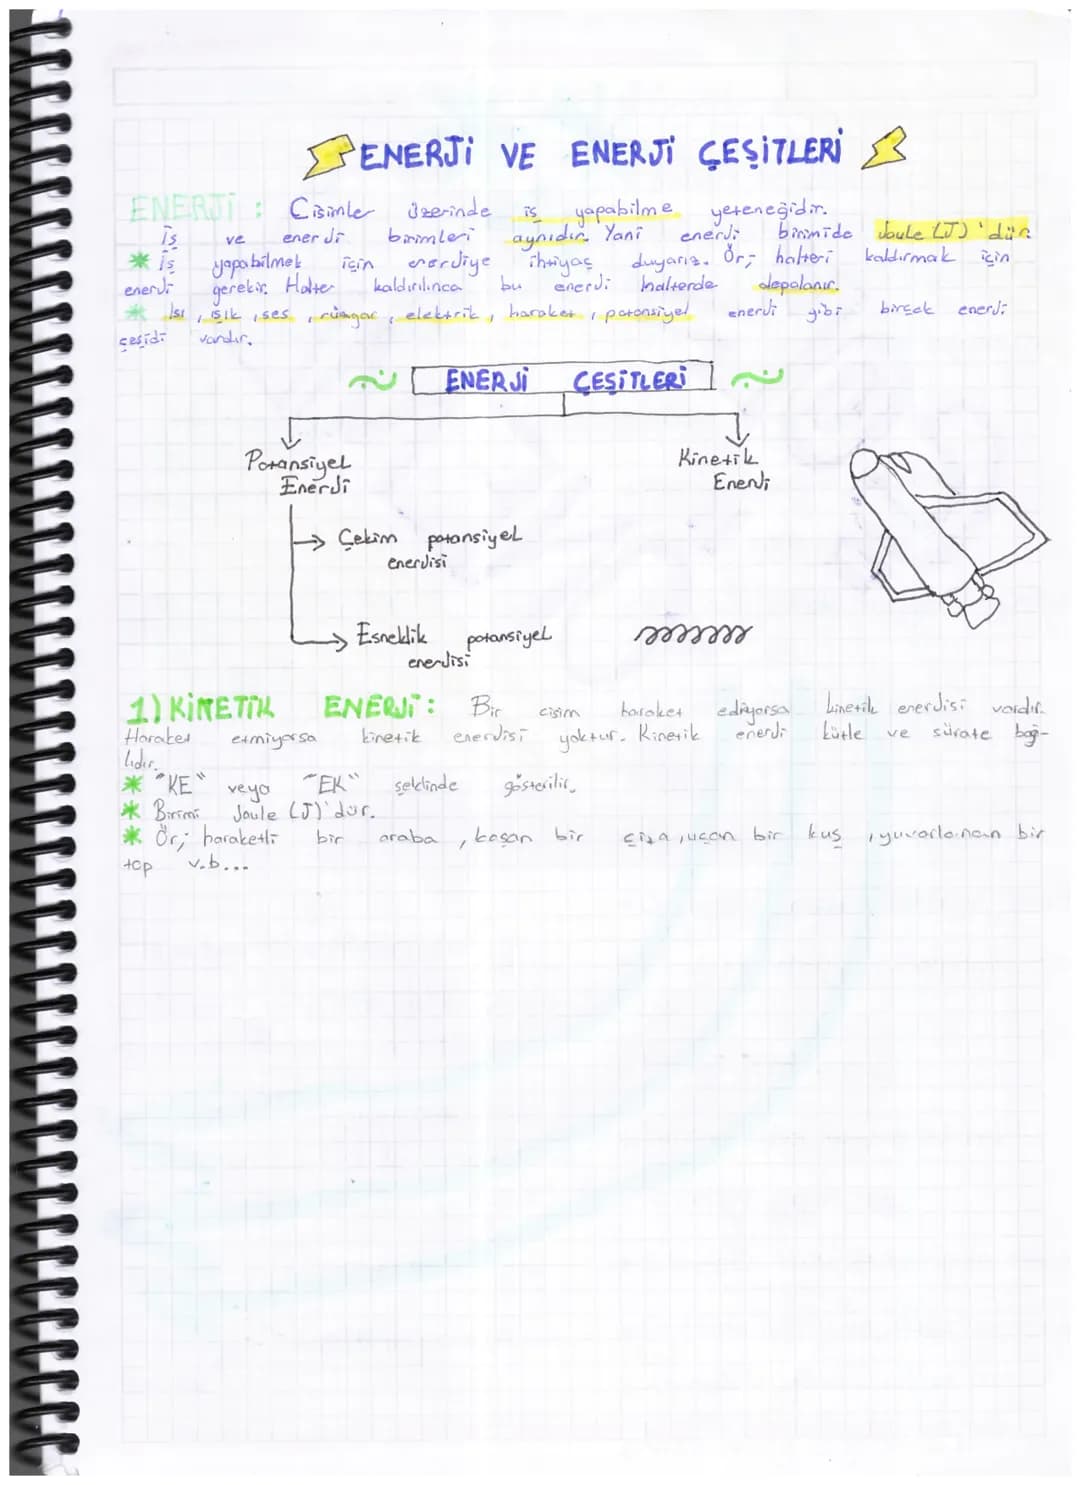 ENERJİ VE ENERJİ ÇEŞİTLERİ
ENERJİ : Cisimler üzerinde iş yapabilme yeteneğidir.
İş ve enerji birimleri aynıdır. Yani enerji birimide Joule (J)'dür.
* İş yapabilmek için enerjiye ihtiyaç duyarız. Ör; halteri kaldırmak için
enerji gerekir. Halter kaldırılınca bu enerji halterde depolanır.
* Isı, ışık, ses, rüzgar, elektrik, haraket, potansiyel enerji gibi birçok enerji
çeşidi vardır.
ENERJİ ÇEŞİTLERİ
Potansiyel
Enerji
Kinetik
Enerji
→ Çekim potansiyel
enerjisi
→ Esneklik potansiyel
enerjisi
1) KİNETİK ENERJİ : Bir cisim haraket ediyorsa kinetik enerjisi vardır.
Haraket etmiyorsa kinetik enerjisi yoktur. Kinetik enerji kütle ve sürate bağ-
lıdır.
* "KE" veya "EK" şeklinde gösterilir.
* Birimi Joule (J)'dür.
* Ör; haraketli bir araba, koşan bir çita, uçan bir kuş, yuvarlanan bir
top v.b...